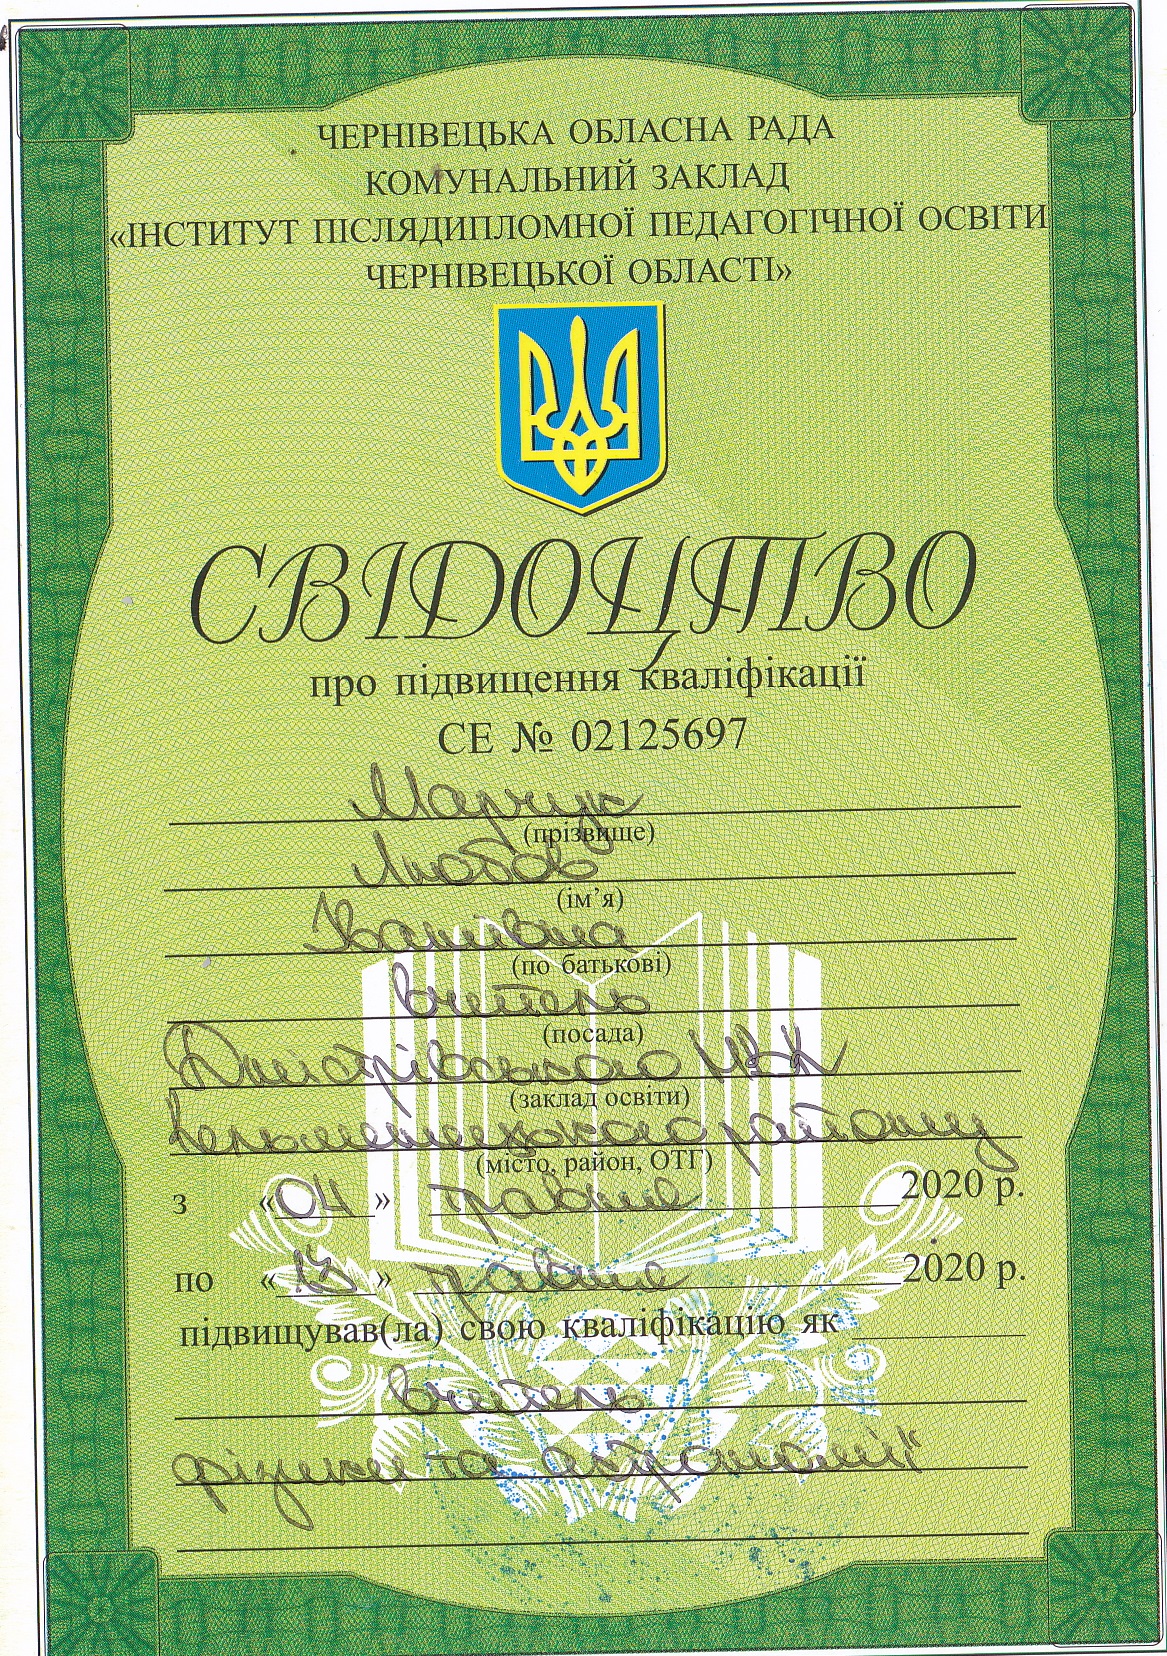 ЧЕРНІВЕЦЬКА ОБЛАСНА РАДА
КОМУНАЛЬНИЙ ЗАКЛАД
«ІНСТИТУТ ПІСЛЯДИПЛОМНОЇ ПЕДАГОГІЧНОЇ ОСВІТИ
ЧЕРНІВЕЦЬКОЇ ОБЛАСТІ»
СВІДОЦТВО
про підвищення кваліфікації
СЕ № 02125697
Марчук
(прізвище)
Любов
(ім’я)
Іванівна
(по батькові)
вчитель
(посада)
Дністрівського НВК
(заклад освіти)
Кельменецького району
(місто, район, ОТГ)
з «04» травня 2020 р.
по «13» травня 2020 р.
підвищував(ла) свою кваліфікацію як
вчитель
фізики та астрономії